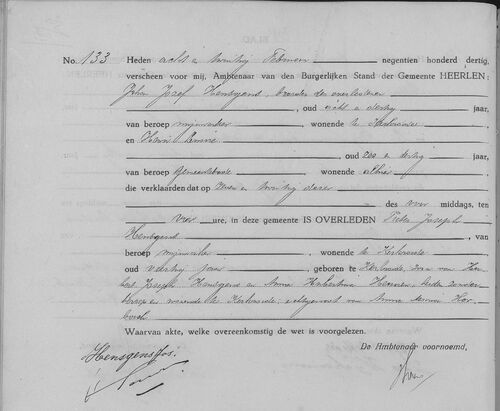 No. 133 Heden acht en twintig Februari negentien honderd dertig,
verscheen voor mij, Ambtenaar van den Burgerlijken Stand der Gemeente HEERLEN:
Johan Jozef Hensgens, broeder des overledenen
, oud acht en dertig jaar,
van beroep mijnwerker, wonende te Kerkrade
en Henri
, oud en dertig jaar,
van beroep gemeentebode wonende alhier
die verklaarden dat op zeven en twintig dezer
des voor middags, ten
vier ure, in deze gemeente IS OVERLEDEN Pieter Joseph
Hensgens, van
beroep mijnwerker, wonende te Kerkrade
oud veertig jaar, geboren te Kerkrade, zoon van
Joseph Hensgens en Anna Hubertina, beiden zonder
beroep en wonende te Kerkrade, echtgenoot van Anna Maria
Waarvan akte, welke overeenkomstig de wet is voorgelezen.
Hensgens Jos.
De Ambtenaar voornoemd,